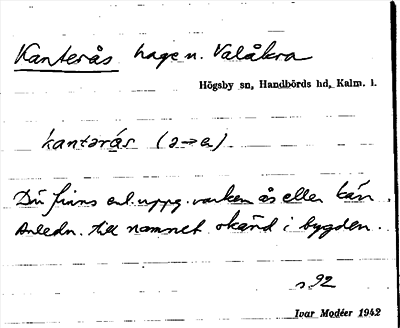 Kanterås hage n. Valåkra
Högsby sn, Handbörds hd, Kalm. l.
kantərås (ə→a).
Där finns enl. uppg. varken ås eller kärr.
Anledn. till namnet okänd i bygden.
s 92
Ivar Modéer 1942